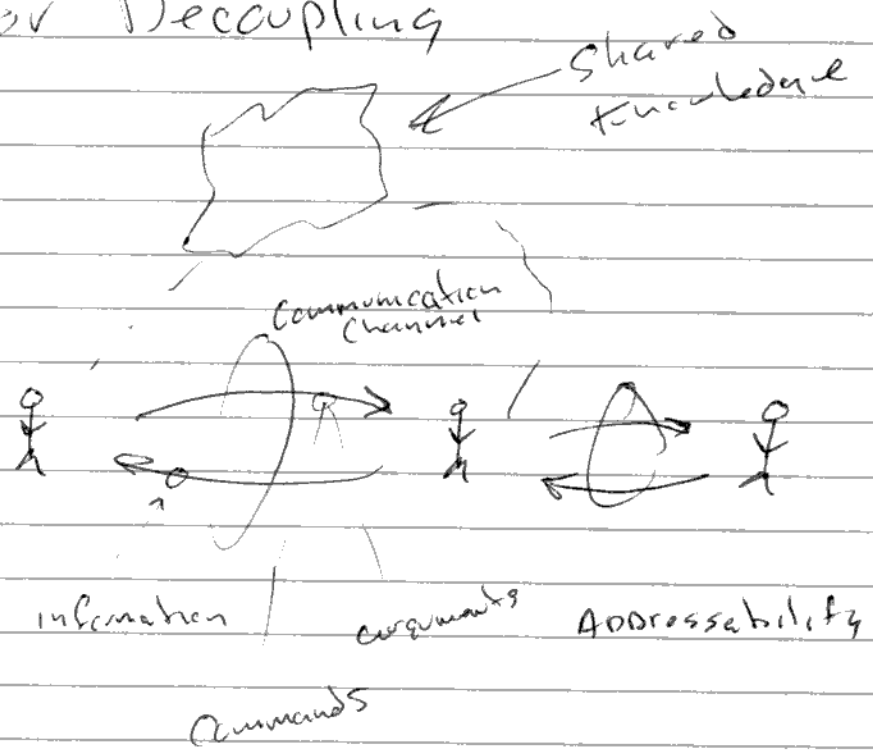 or Decoupling
Shared
Knowledge
Communication
Channel
information
arguments
ADDressability
Commands